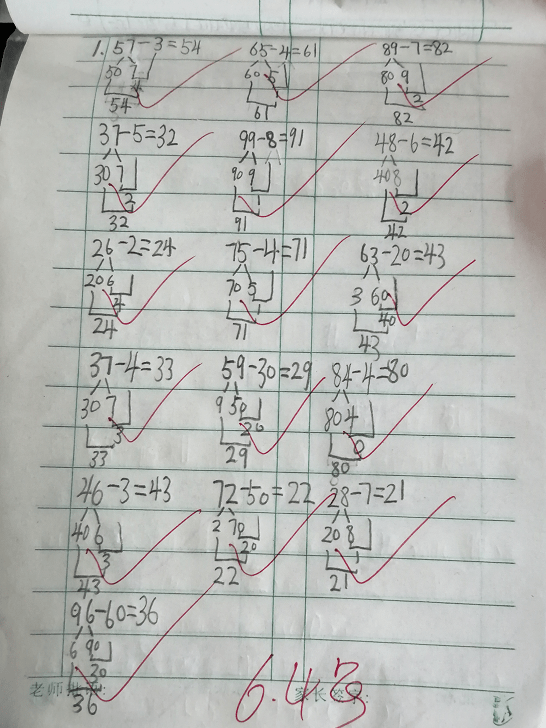 1. 57-3=54 65-4=61 89-7=82
50 7 60 5 80 9
4 2
54 61 82
37-5=32 99-8=91 48-6=42
30 7 90 9 40 8
2 1 2
32 91 42
26-2=24 75-4=71 63-20=43
20 6 70 5 3 60
4 1 40
24 71 43
37-4=33 59-30=29 84-4=80
30 7 9 50 80 4
3 20 0
33 29 80
46-3=43 72-50=22 28-7=21
40 6 2 70 20 8
3 20 1
43 22 21
96-60=36
6 90
36
6.43